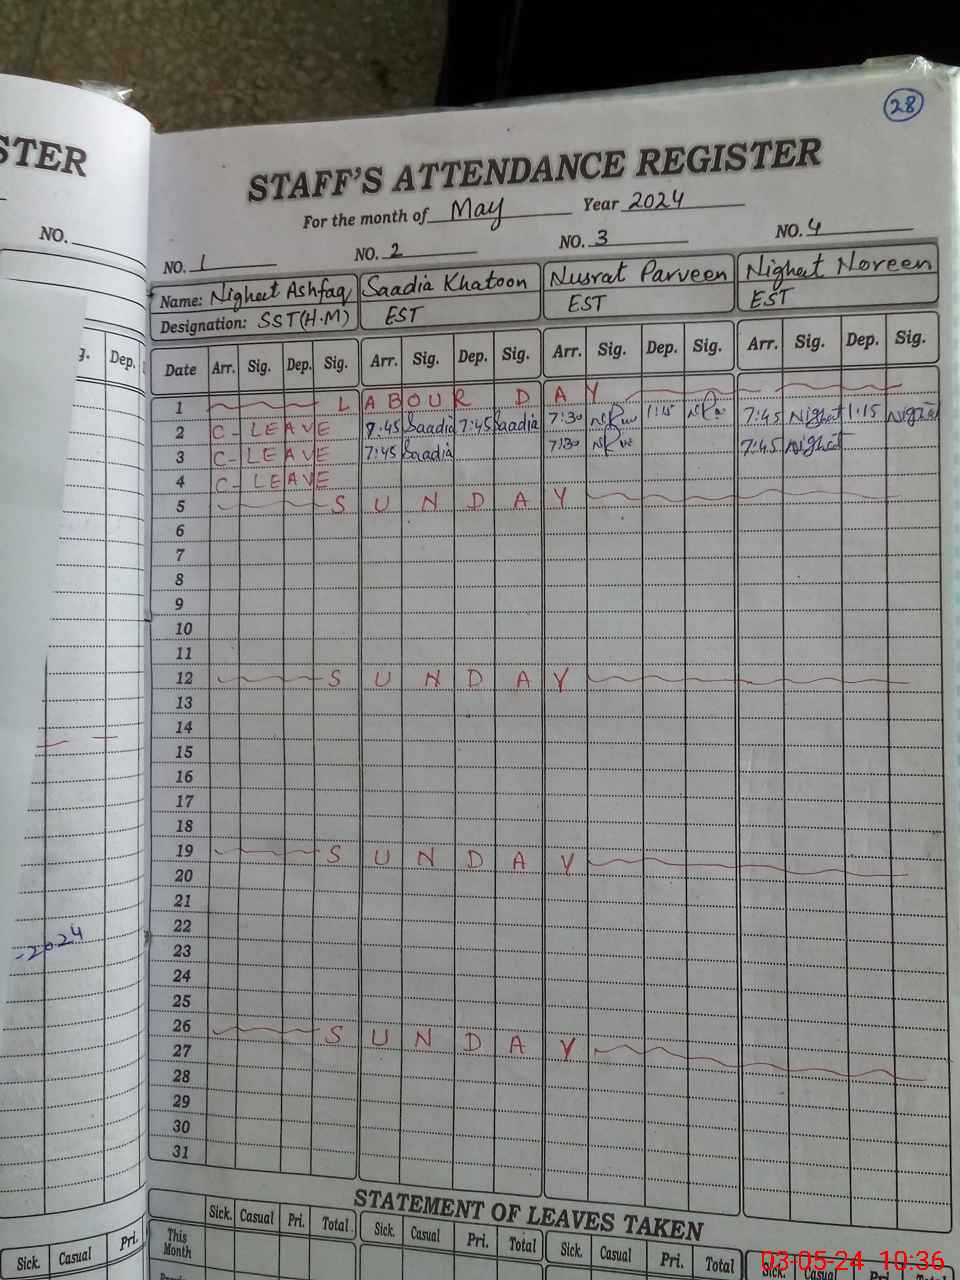 28
STER
STAFF'S ATTENDANCE REGISTER
For the month of May Year 2024
NO.
NO. 1 NO. 2 NO. 3 NO. 4
Name: Nigheet Ashfaq Saadia Khatoon Nusrat Parveen Nighat Noreen
Designation: SST(H.M) EST EST EST
g. Dep.
Date Arr. Sig. Dep. Sig. Arr. Sig. Dep. Sig. Arr. Sig. Dep. Sig. Arr. Sig. Dep. Sig.
1 LABOUR DAY
2 C- LEAVE 7:45 Saadia 7:45 Saadia 7:30 1:15 7:45 Nighat 1:15 Nighat
3 C- LEAVE 7:45 Saadia 7:30 7:45 Nighat
4 C- LEAVE
5 SUNDAY
6
7
8
9
10
11
12 SUNDAY
13
14
15
16
17
18
19 SUNDAY
20
21
22
-2024
23
24
25
26 SUNDAY
27
28
29
30
31
STATEMENT OF LEAVES TAKEN
Sick. Casual Pri. Total Sick. Casual Pri. Total Sick. Casual Pri. Total Sick.
This Month
Sick. Casual Pri.
03-05-24 10:36